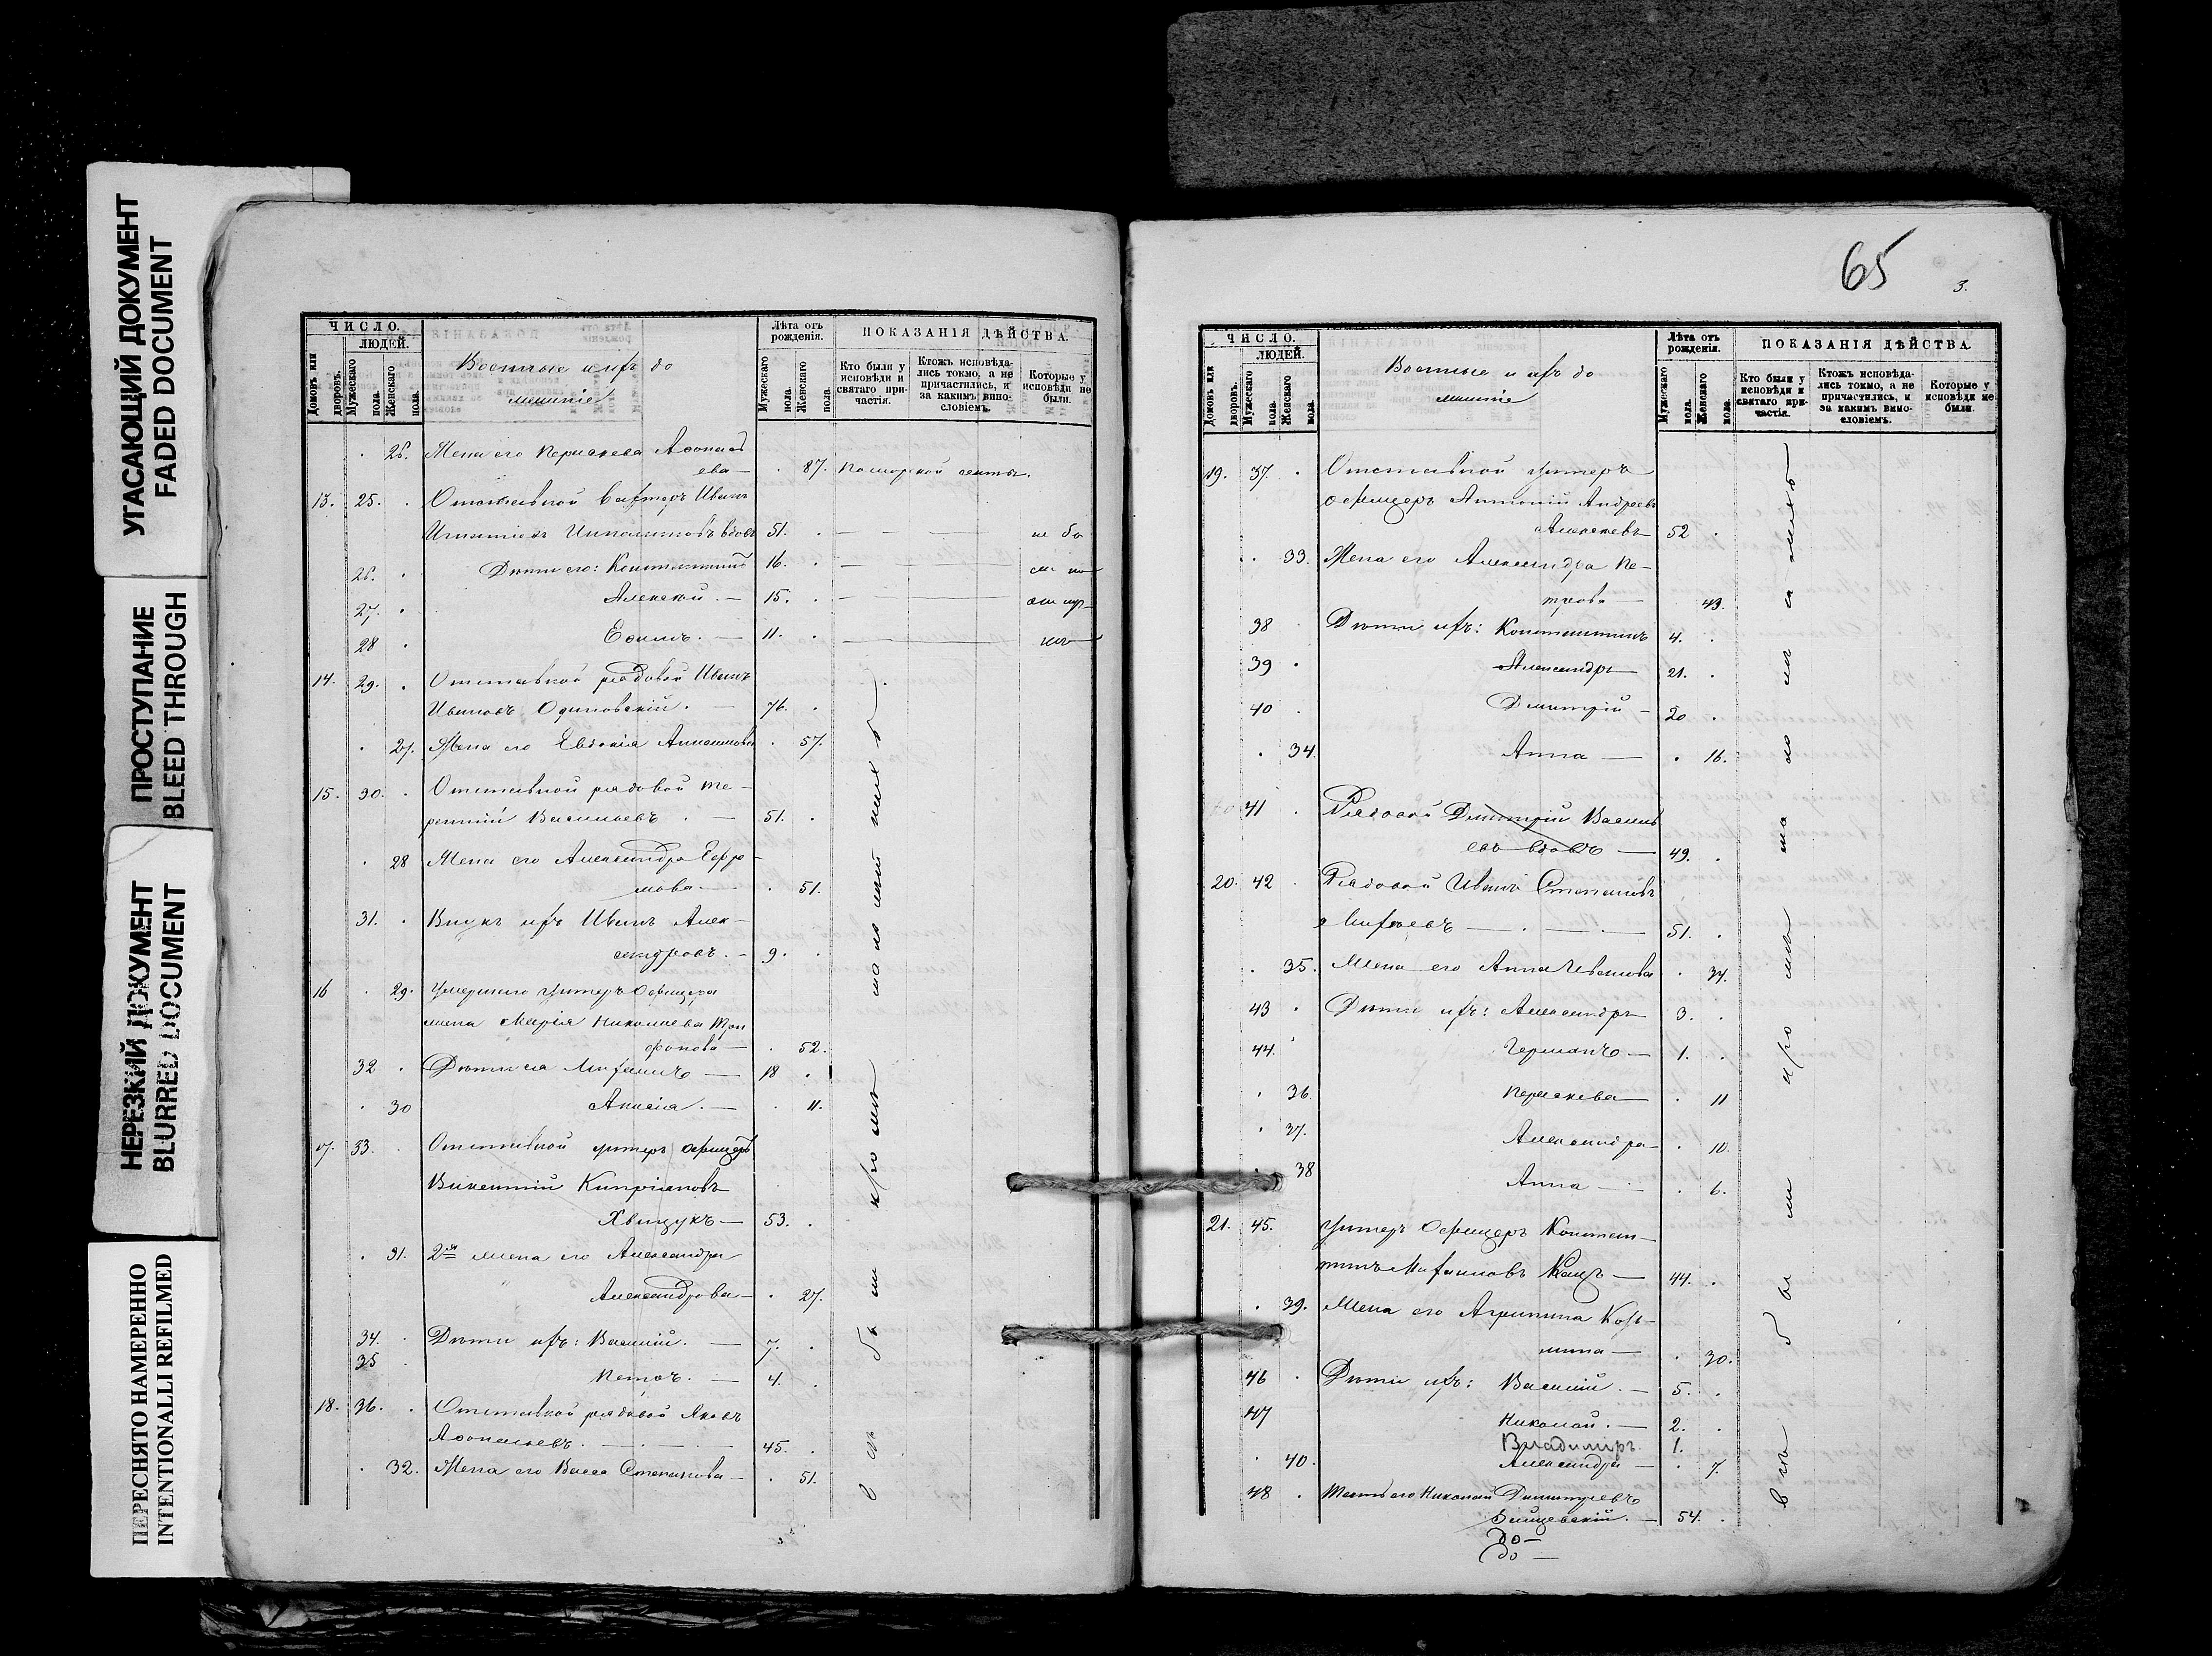 УГАСАЮЩИЙ ДОКУМЕНТ
FADED DOCUMENT
ПРОСТУПАНИЕ
BLEED THROUGH
НЕРЕЗКИЙ ДОКУМЕНТ
BLURRED DOCUMENT
ПЕРЕСНЯТО НАМЕРЕННО
INTENTIONALLI REFILMED
ЧИСЛО.
ЛЮДЕЙ.
Домовъ или дворовъ.
Мужескаго пола.
Женскаго пола.
Военные и ихъ до
машніе
Лѣта отъ рожденія.
Мужескаго пола.
Женскаго пола.
ПОКАЗАНІЯ ДѢЙСТВА.
Кто были у исповѣди и святаго причастія.
Ктожъ исповѣдались токмо, а не причастились, и за какимъ винословіемъ.
Которые у исповѣди не были.
26. Жена его Параскева Афонась
ева — 87. поморской секты.
13. 25. Отставной вахтеръ Иванъ
Игнатіевъ вдовъ 51. не бы
26. Дѣти его: Константинъ 16.
27. Алексѣй. — 15.
28 Ефимъ. — 11.
14. 29. Отставной рядовой Иванъ
Ивановъ Одиновскій. — 76.
27. Жена его Евдокія 57.
15. 30. Отставной рядовой Те-
рентій Васильевъ — 51.
28 Жена его Александра Ефре-
мова. — 51.
31. Внукъ ихъ Иванъ Алек-
сандровъ. — 9.
16 29. Умершаго унтеръ Офицера
жена Марія Николаева Три
фонова — 52.
32 Дѣти ея Михаилъ — 18
30 Анисія. — 11.
17. 33. Отставной унтеръ офицеръ
Викентій Кипріановъ
Хвищукъ — 53.
31. 2ая жена его Александра
Александрова — 27.
34. Дѣти ихъ: Василій. — 7.
35 Петръ. — 4.
18. 36. Отставной рядовой Яковъ
Афонасьевъ. — 45.
32. Жена его Васса Степанова — 51.
65
3.
ЧИСЛО.
ЛЮДЕЙ.
Домовъ или дворовъ.
Мужескаго пола.
Женскаго пола.
Военные и ихъ до
машніе
Лѣта отъ рожденія.
Мужескаго пола.
Женскаго пола.
ПОКАЗАНІЯ ДѢЙСТВА.
Кто были у исповѣди и святаго причастія.
Ктожъ исповѣдались токмо, а не причастились, и за какимъ винословіемъ.
Которые у исповѣди не были.
19. 37. Отставной унтеръ
офицеръ Антоній Андреевъ
Алексѣевъ 52
33. Жена его Александра Пе-
трова — 43.
38 Дѣти ихъ: Константинъ 4.
39 Александръ — 21.
40 Дмитрій — 20
34. Анна — 16.
41 Рядовой Дмитрій Василь
евъ вдовъ — 49.
20. 42 Рядовой Иванъ Степановъ
51.
35. Жена его Анна Иванова 34.
43 Дѣти ихъ: Александръ 3.
44. Германъ — 1.
36 Параскева — 11
37. Александра — 10.
38 Анна — 6.
21. 45. Унтеръ Офицеръ Констан-
тинъ Михаиловъ Кацъ — 44.
39. Жена его Агрипина Козь-
мина — 30.
46 Дѣти ихъ: Василій. — 5.
47 Николай. — 2.
Владиміръ. 1.
40. Александра — 7.
48 Тесть его Николай Димитріевъ
54.